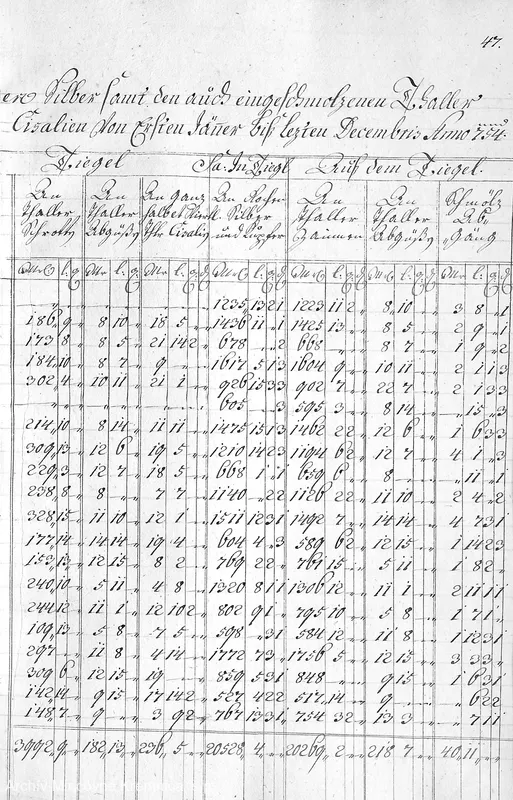 47.
Silber samt den auch eingeschmolzenen Thaller
Cisalien Von Ersten Jäner bis lezten Decembris Anno 754.
Tiegel Sa. In Tiegl Auf dem Tiegel.
An An An Ganz An Rohen An An Schmölz
Thaller Thaller halbet Silber Thaller Thaller Ab
Schrott Abgüss Thlr Cisalis und Kupfer Zainnen Abgüss Gäng
1235 13 2 1 1223 11 2 8 10 3 8 1
186 9 8 10 18 5 1436 11 1 1425 13 8 5 2 9 1
173 8 8 5 21 14 2 678 2 668 8 7 1 9 2
184 10 8 7 9 1617 5 13 1604 9 10 11 2 11 3
302 4 10 11 21 1 926 15 3 3 902 7 22 7 2 13 3
605 3 595 3 8 14 15 3
214 10 8 14 11 11 1475 15 13 1462 2 2 12 6 1 6 3 3
309 13 12 6 19 5 1210 14 2 3 1194 6 2 12 7 4 1 3
229 3 12 7 18 5 668 1 1 659 6 8 11 1
238 8 8 7 7 1140 2 2 1126 2 2 11 10 2 4 2
328 15 11 10 12 1 1511 12 3 1 1492 7 14 14 4 7 3 1
177 14 14 14 19 4 604 4 3 589 6 2 12 15 1 14 2 3
153 13 12 15 8 2 769 2 2 761 15 5 11 1 8 2
240 10 5 11 4 8 1320 8 1 1 1306 12 11 1 2 11 1 1
244 12 11 1 12 10 2 802 9 1 795 10 5 8 1 7 1
109 13 5 8 7 5 598 3 1 584 12 11 8 1 12 3 1
297 11 8 4 14 1772 7 3 1756 5 12 15 3 3 3
309 6 12 15 19 859 5 3 1 848 9 15 1 6 3 1
142 14 9 15 17 14 2 527 4 2 2 517 14 9 6 2 2
148 7 9 3 9 2 767 13 3 1 754 3 2 13 3 7 1 1
3992 9 182 13 236 5 20528 4 20269 2 218 7 40 11